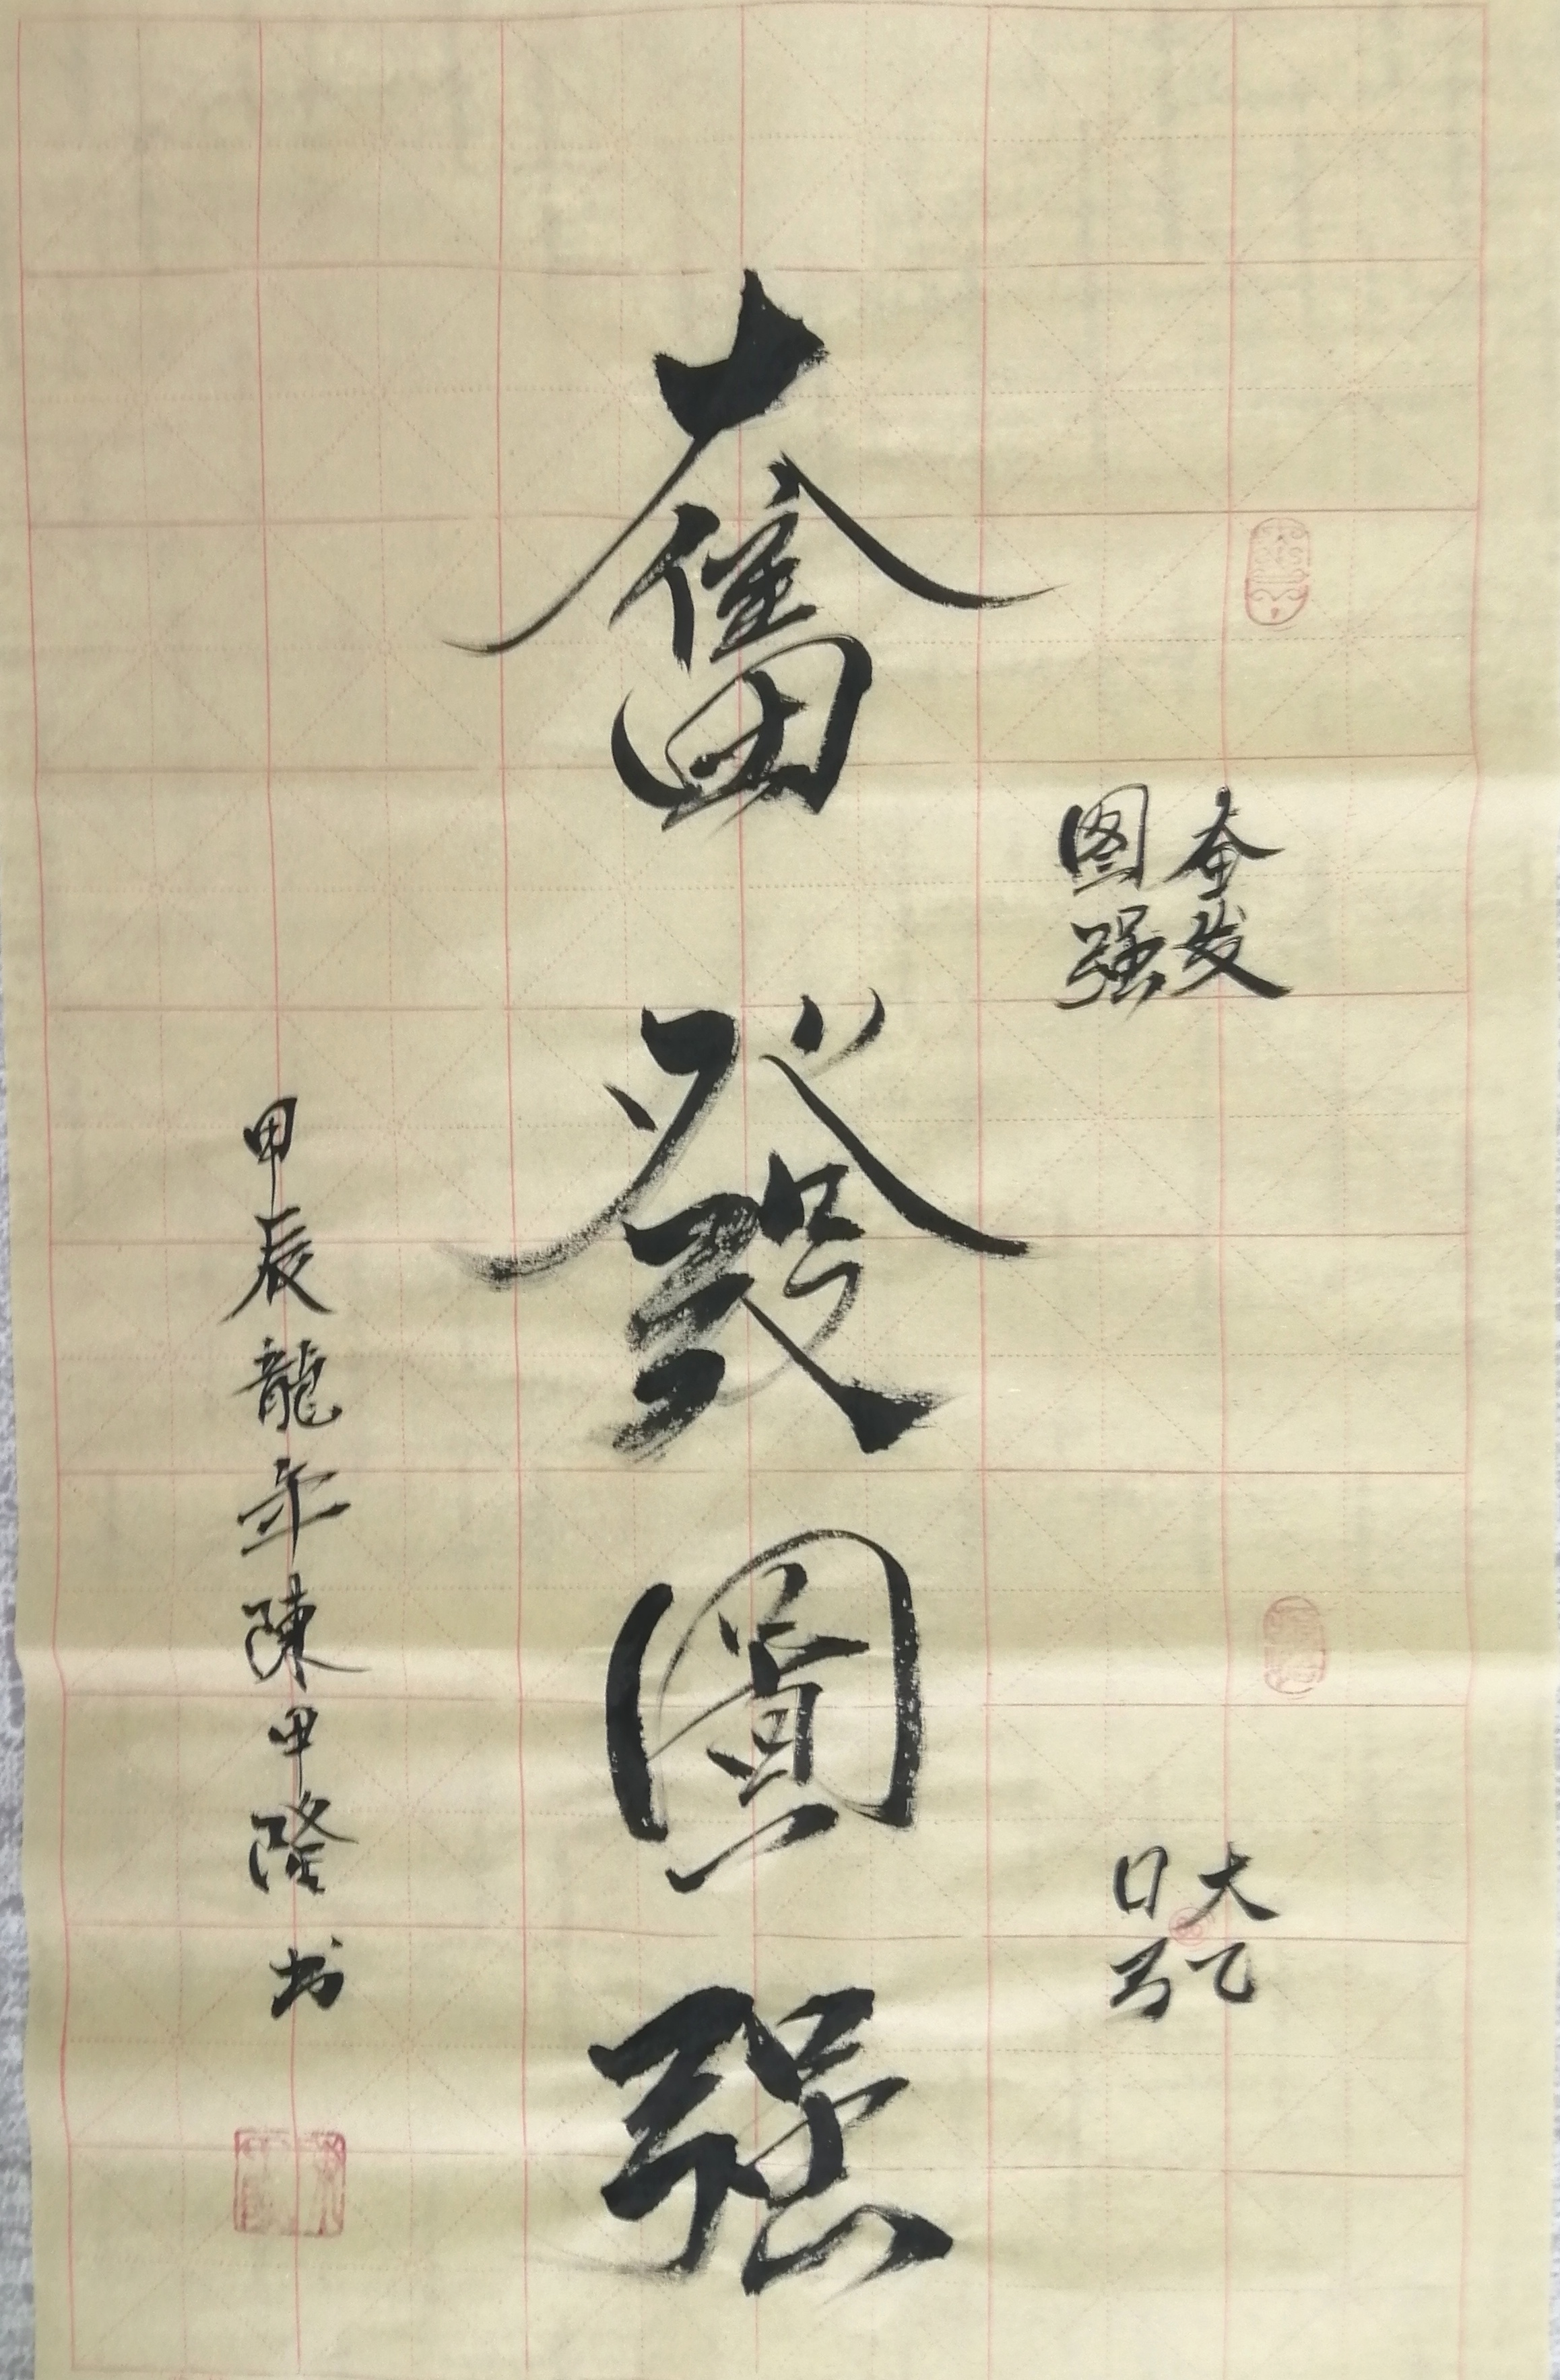 奋发
图强
大乙
口弓
奮發圖強
甲辰龍年陳甲隆书